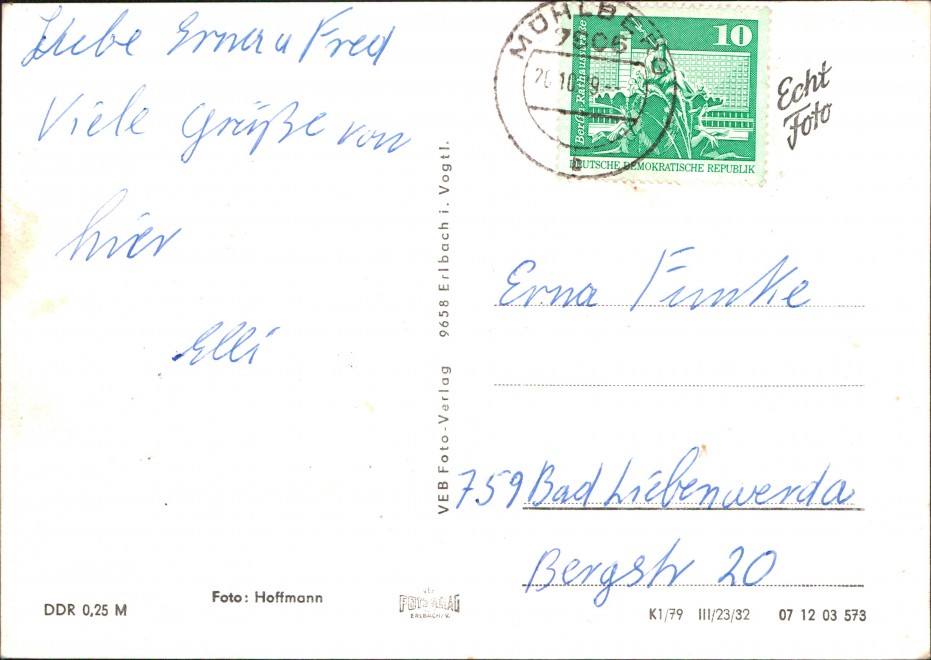 Liebe Erna u Fred
Viele Grüße von
hier
Elli
MÜHLBERG
7906
20.10.79
10
Berlin-Rathausstraße
DEUTSCHE DEMOKRATISCHE REPUBLIK
Echt
Foto
VEB Foto-Verlag 9658 Erlbach i. Vogtl.
Erna Funke
759 Bad Liebenwerda
Bergstr 20
DDR 0,25 M
Foto: Hoffmann
VEB
FOTOVERLAG
ERLBACH/V.
K1/79 III/23/32 07 12 03 573